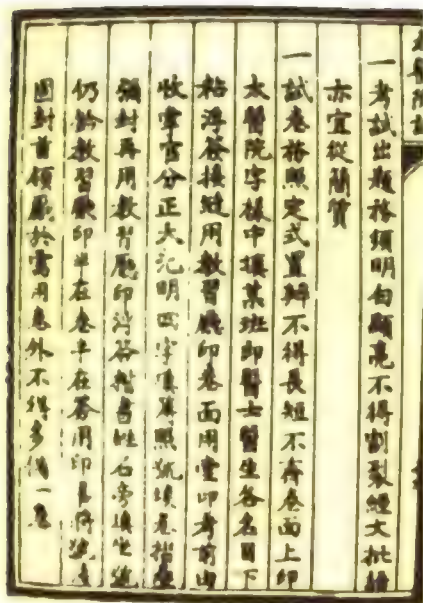 一考試出題務須明白顯亮不得割裂經文批擅
亦宜從簡質
一試卷格照定式置辦不得長短不齊卷面上印
太醫院字樣中填某班即醫士醫生各名目下
粘浮簽接縫用教習廳印卷面用堂印考前由
收掌官分正大光明四字號照號填卷
彌封再用教習廳印浮簽楷書姓名旁填坐號
仍鈐教習廳印半在卷半在簽用印
固封首領廳於需用卷外不得多備一卷